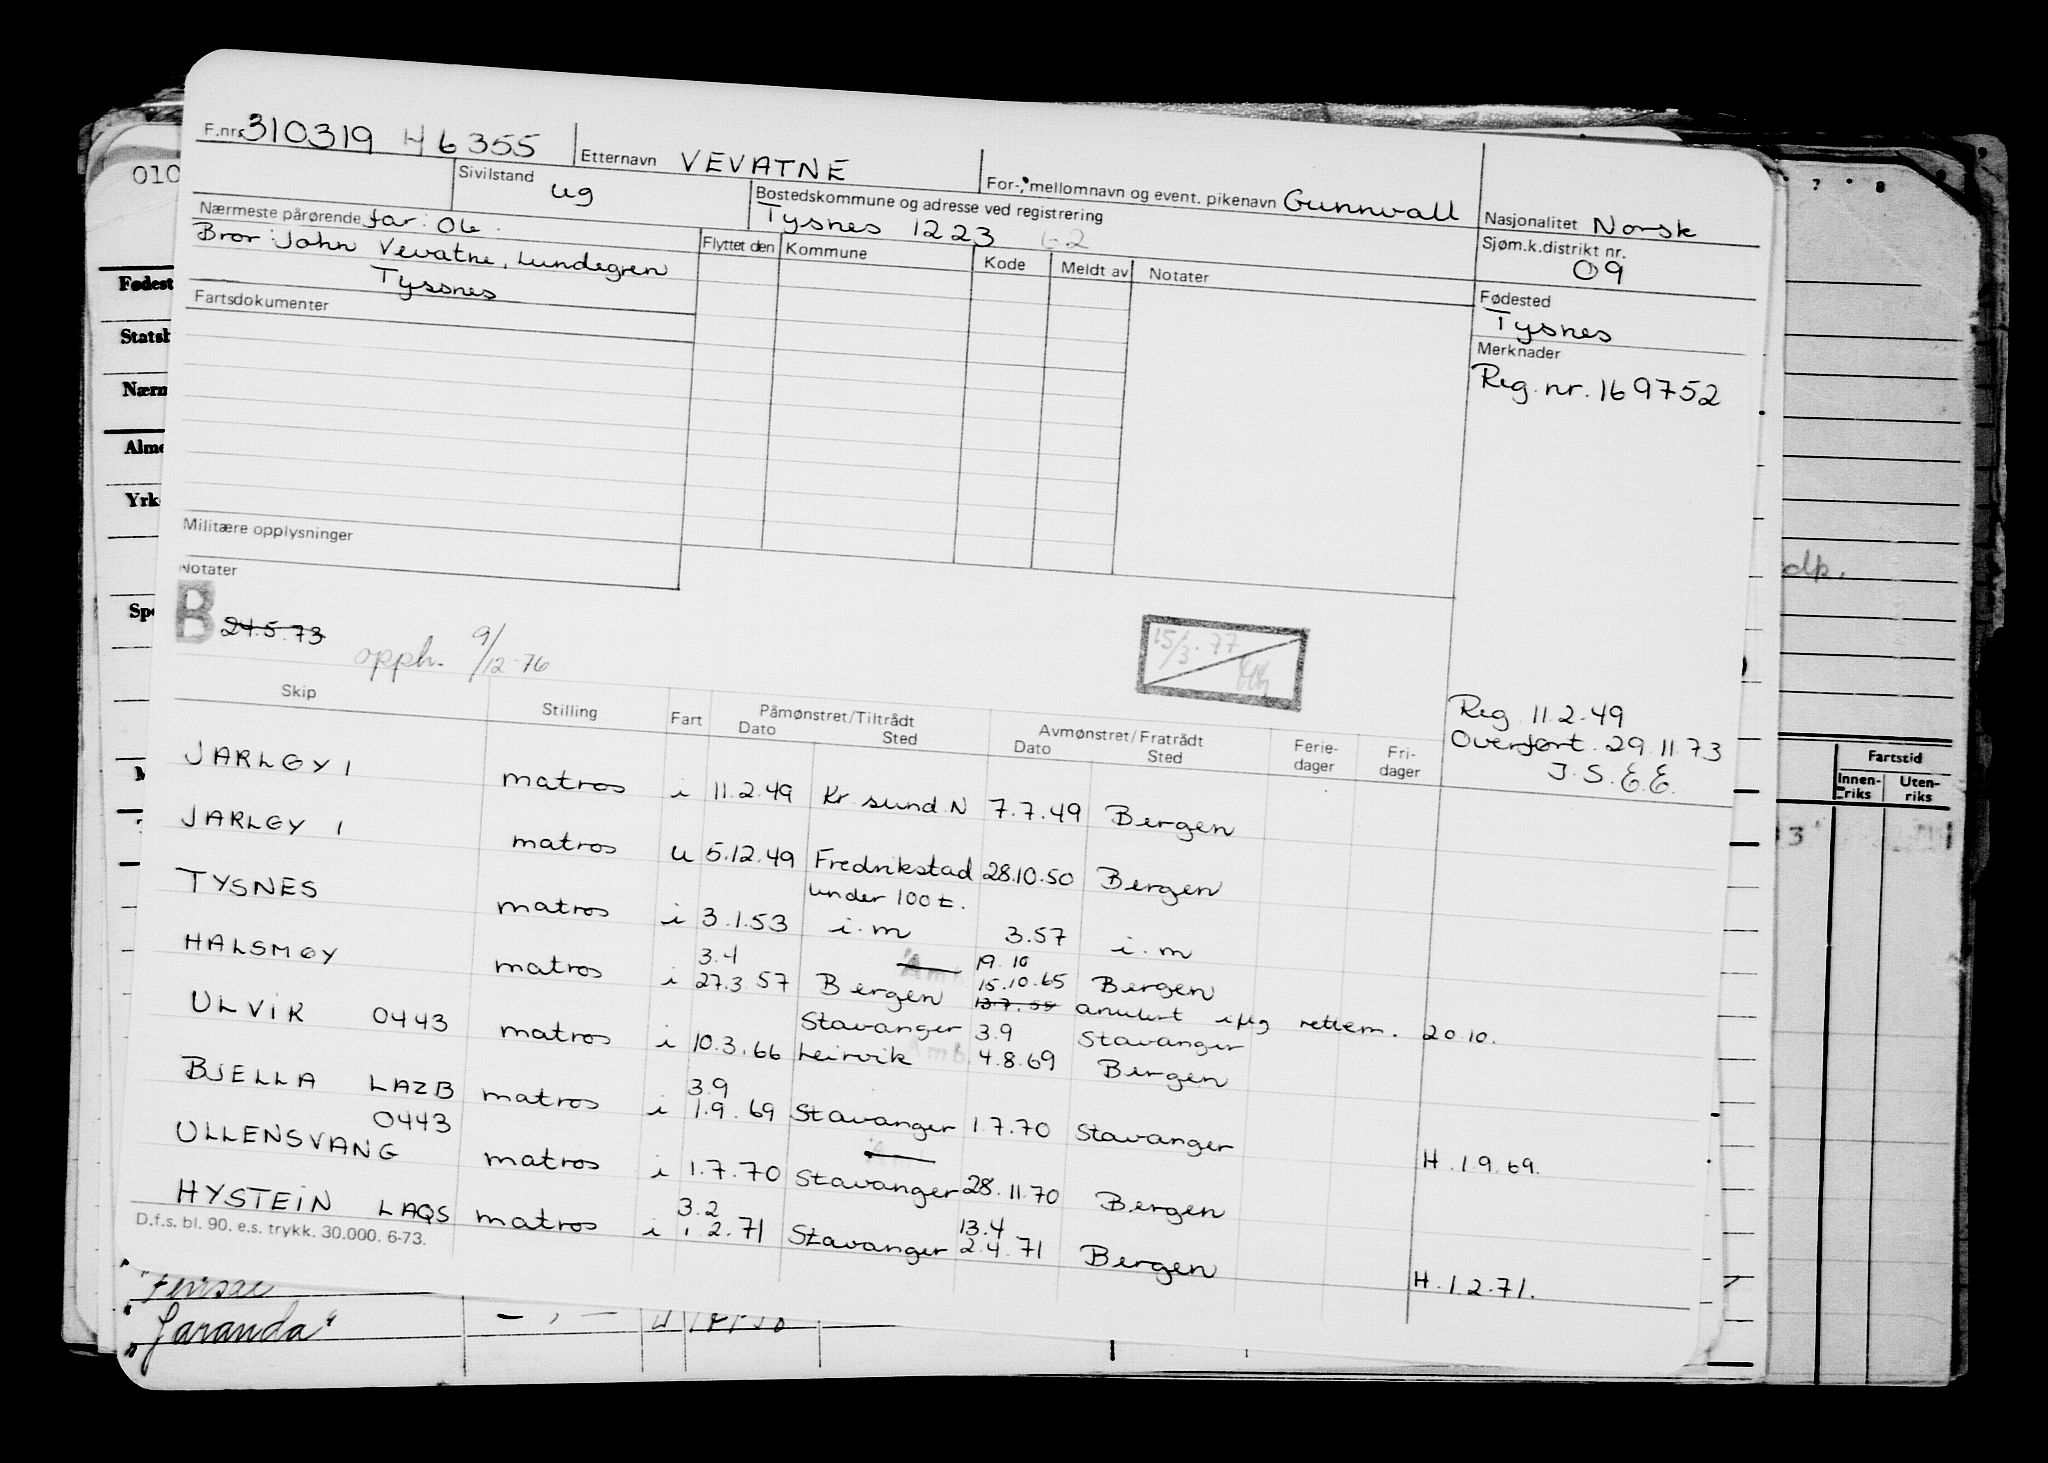 F.nr. 310319 46355
Etternavn VEVATNE
For-, mellomnavn og event. pikenavn Gunnvall
Nasjonalitet Norsk
010
Sivilstand ug
Bostedskommune og adresse ved registrering
Tysnes 1223 62
Sjøm.k.distrikt nr.
09
Nærmeste pårørende far: Ole.
Bror: John Vevatne, Lundegren
Tyssnes
Flyttet den Kommune Kode Meldt av Notater
Fødested
Tysnes
Fartsdokumenter
Merknader
Reg. nr. 169752
Militære opplysninger
Notater
B 24.5.73 opph. 9/12-76
15/3.77
Reg. 11.2.49
Overført. 29.11.73
J.S.E.E.
Skip Stilling Fart Påmønstret/Tiltrådt Avmønstret/Fratrådt Ferie- Fri-
Dato Sted Dato Sted dager dager
JARLØY 1 matros i 11.2.49 Kr.sund N 7.7.49 Bergen
JARLØY 1 matros u 5.12.49 Fredrikstad 28.10.50 Bergen
under 100 t.
TYSNES matros i 3.1.53 i.m 3.57 i.m
3.4 19.10
HALSMØY matros i 27.3.57 Bergen 15.10.65 Bergen
13.7.55 anulert ifølg rettem. 20.10.
Stavanger 3.9 Stavanger
ULVIK 0443 matros i 10.3.66 Leirvik 4.8.69 Bergen
3.9
BJELLA LAZB matros i 1.9.69 Stavanger 1.7.70 Stavanger H.1.9.69.
0443
ULLENSVANG matros i 1.7.70 Stavanger 28.11.70 Bergen
3.2 13.4
HYSTEIN LAQS matros i 1.2.71 Stavanger 2.4.71 Bergen H.1.2.71.
D.f.s. bl. 90. e.s. trykk. 30.000. 6-73.
Fødest
Statsb
Nærm
Alme
Yrk
Spe
7 8
dp.
Fartstid
Innen-riks Uten-riks
"Garanda"